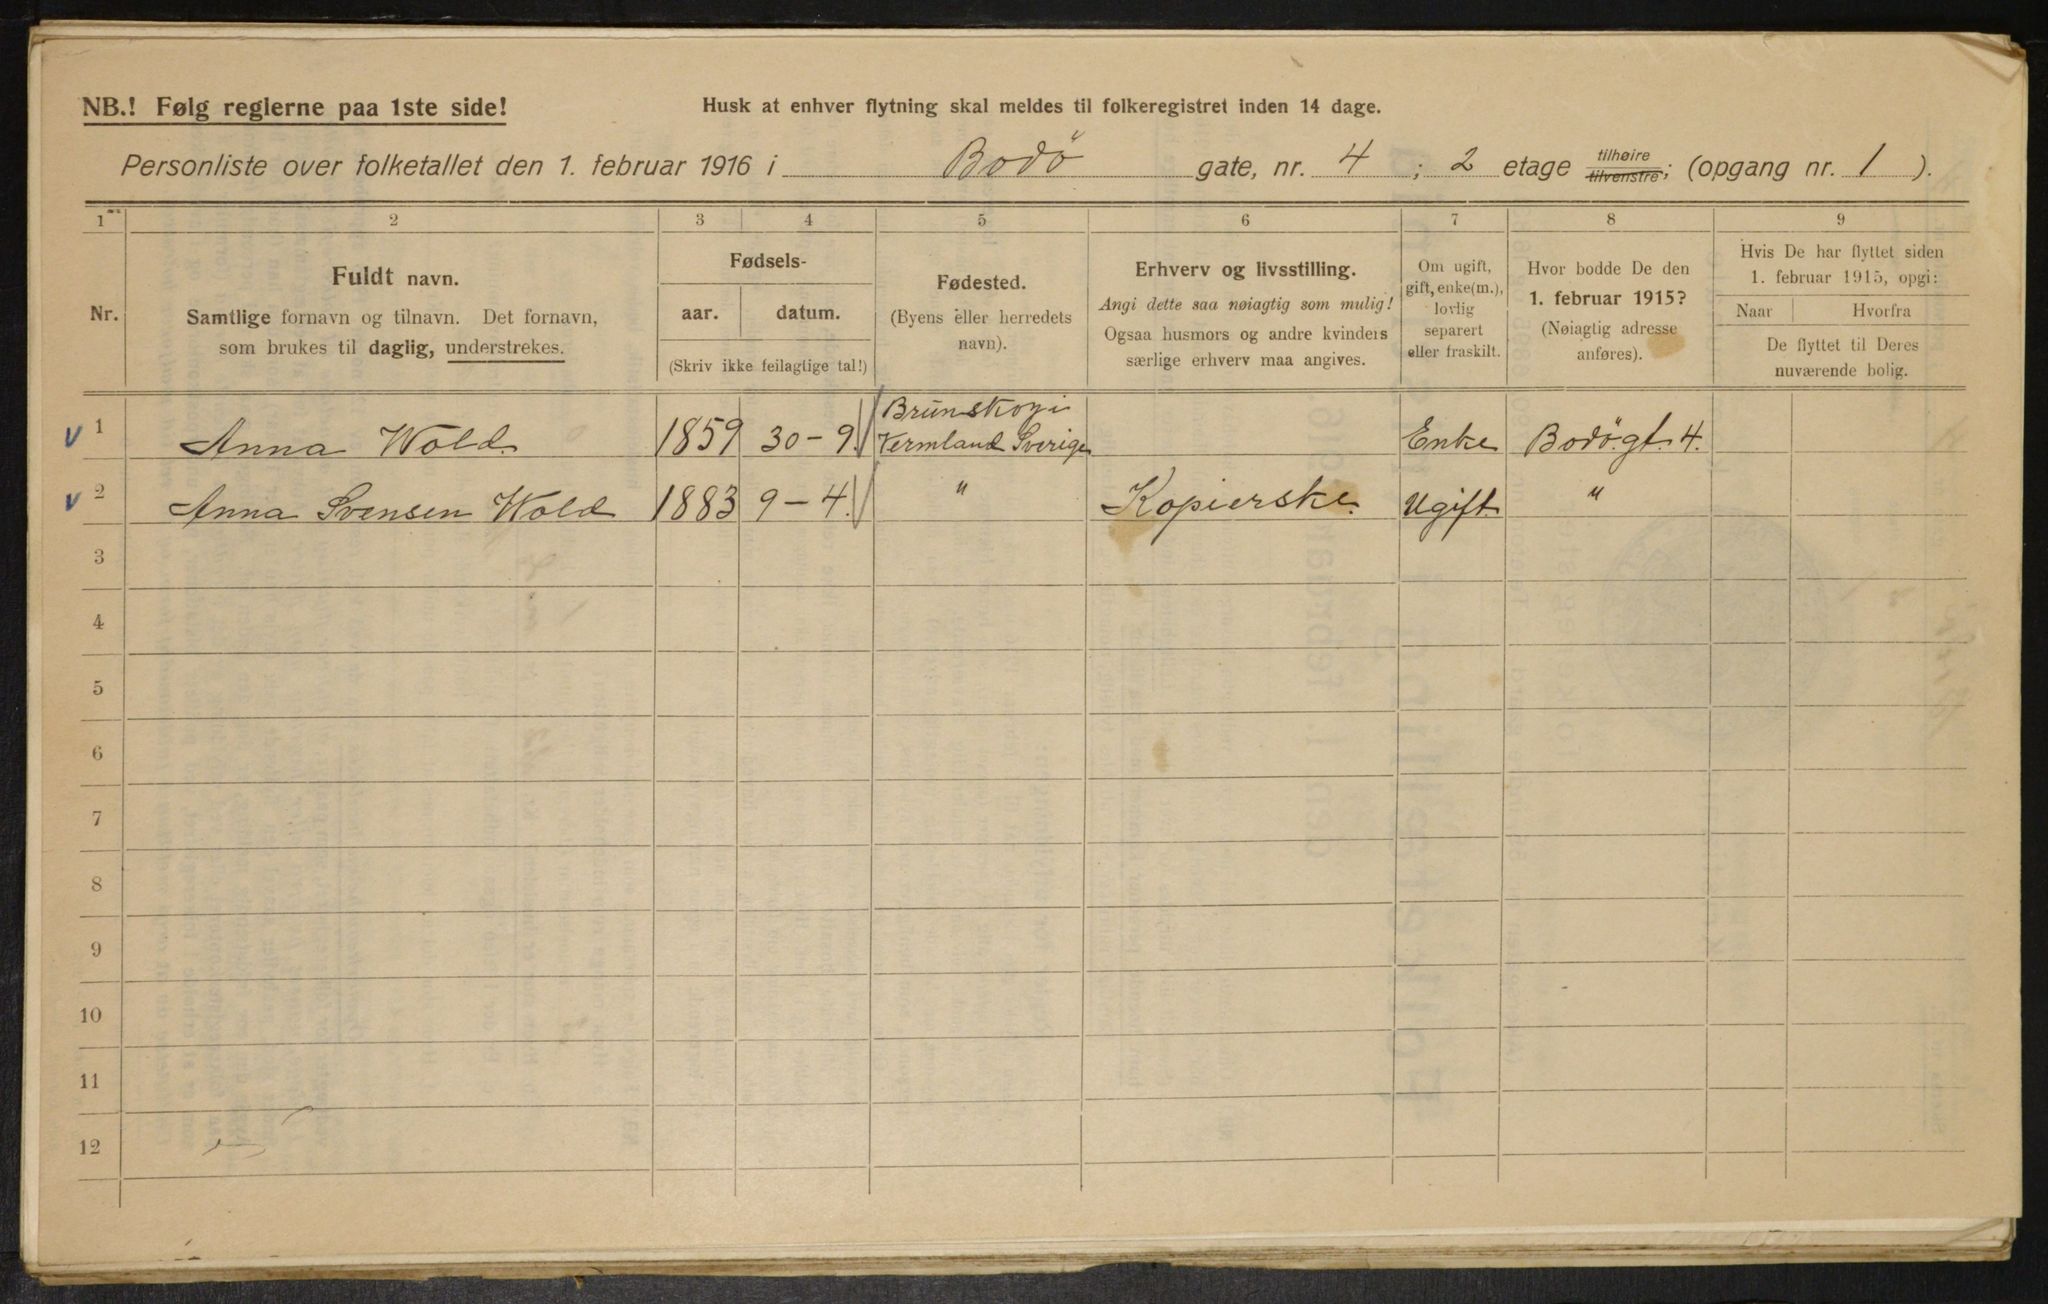 NB.! Følg reglerne paa 1ste side!
Husk at enhver flytning skal meldes til folkeregistret inden 14 dage.
Personliste over folketallet den 1. februar 1916 i Bodø gate, nr. 4; 2 etage tilhøire tilvenstre; (opgang nr. 1).
1 2 3 4 5 6 7 8 9
Nr.
Fuldt navn.
Samtlige fornavn og tilnavn. Det fornavn,
som brukes til daglig, understrekes.
Fødsels-
aar. datum.
(Skriv ikke feilagtige tal!)
Fødested.
(Byens eller herredets
navn).
Erhverv og livsstilling.
Angi dette saa nøiagtig som mulig!
Ogsaa husmors og andre kvinders
særlige erhverv maa angives.
Om ugift,
gift, enke(m.),
lovlig
separert
eller fraskilt.
Hvor bodde De den
1. februar 1915?
(Nøiagtig adresse
anføres).
Hvis De har flyttet siden
1. februar 1915, opgi:
Naar Hvorfra
De flyttet til Deres
nuværende bolig.
1 Anna Wold. 1859 30-9. Brunskog i Vermland Sverige Enke Bodø.gt. 4.
2 Anna Svensen Wold 1883 9-4. " Kopierske. Ugift "
3
4
5
6
7
8
9
10
11
12